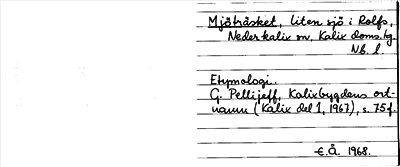 Mjöträsket, liten sjö i Rolfs,
Nederkalix sn, Kalix doms.tg
Nb. l.
Etymologi.
G. Pellijeff, Kalixbygdens ort-
namn (Kalix del 1, 1967), s. 75f.
E.Å. 1968.